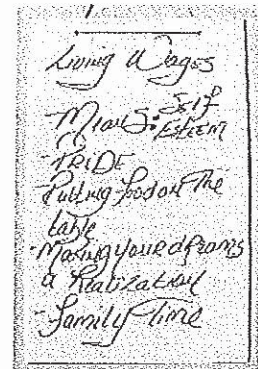 Living Wages
Means: Self
Esteem
- PRIDE
- Putting food on the
table
- Making your dreams
a Realization
- Family Time